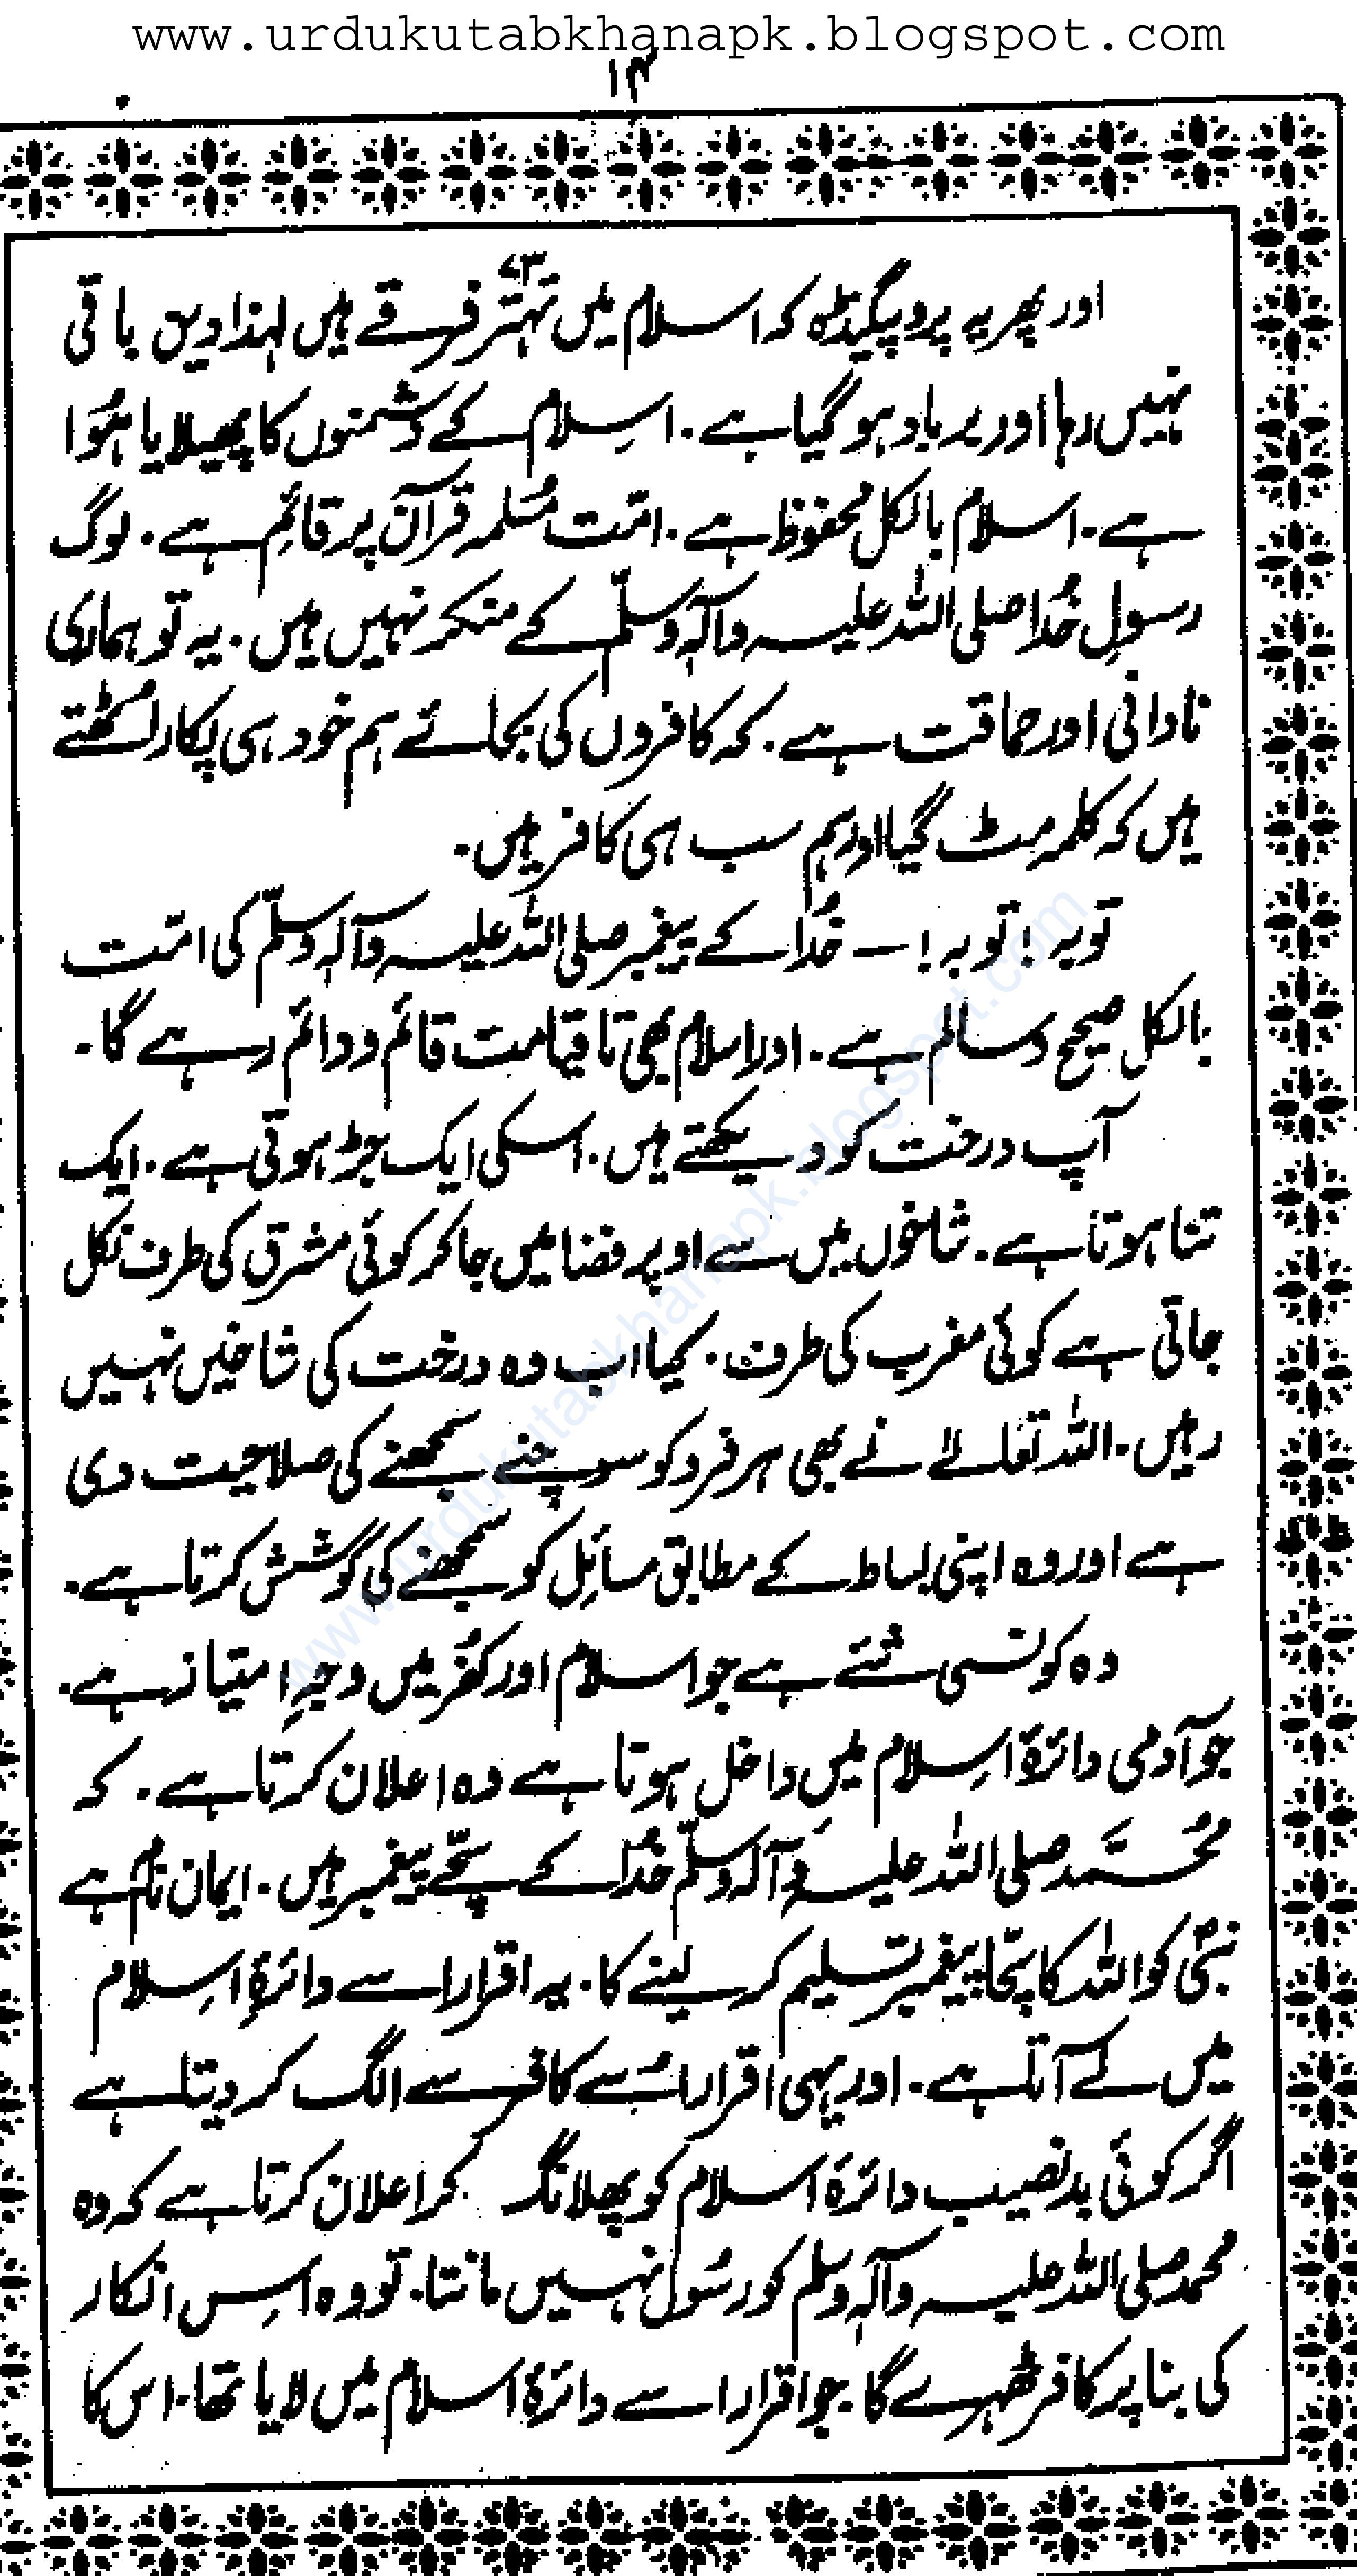 www.urdukutabkhanapk.blogspot.com
۱۴
۷۳
اور پھر یہ پروپیگنڈہ کہ اسلام میں تہتر فرقے ہیں لہذا دین باقی
نہیں رہا اور برباد ہو گیا ہے۔ اسِلام کے دُشمنوں کا پھیلایا ہُوا
ہے۔ اسلام بالکل محفوظ ہے۔ امّت مُسلمہ قرآن پر قائِم ہے۔ لوگ
رسولِ خُدا صلی اللہ علیہ وآلہٖ وسلّم کے منکر نہیں ہیں۔ یہ تو ہماری
نادانی اور حماقت ہے۔ کہ کافروں کی بجائے ہم خود ہی پکار اُٹھتے
ہیں کہ کلمہ مِٹ گیا اور ہم سب ہی کافر ہیں۔
توبہ! توبہ! — خُدا کے پیغمبر صلی اللہ علیہ وآلہٖ وسلّم کی امّت
بالکل صحیح و سالم ہے۔ اور اسلام بھی تا قیامت قائم و دائم رہے گا۔
آپ درخت کو دیکھتے ہیں۔ اسکی ایک جڑ ہوتی ہے۔ ایک
تنا ہوتا ہے۔ شاخوں میں سے اوپر فضا میں جا کر کوئی مشرق کی طرف نکل
جاتی ہے کوئی مغرب کی طرف۔ کیا اب وہ درخت کی شاخیں نہیں
رہیں۔ اللہ تعالےٰ نے بھی ہر فرد کو سوچنے سمجھنے کی صلاحیت دی
ہے اور وہ اپنی بساط کے مطابق مسائِل کو سمجھنے کی کوشش کرتا ہے۔
وہ کونسی شئے ہے جو اسلام اور کفُر میں وجہِ امتیاز ہے۔
جو آدمی دائرۂ اسِلام میں داخل ہوتا ہے وہ اعلان کرتا ہے۔ کہ
مُحَمَّد صلی اللہ علیہ وآلہ وسلّم خُدا کے سچّے پیغمبر ہیں۔ ایمان نام ہے
نبیؐ کو اللہ کا سچّا پیغمبر تسلیم کر لینے کا۔ یہ اقرار اسے دائرۂ اسِلام
میں لے آتا ہے۔ اور یہی اقرار اسُے کافر سے الگ کر دیتا ہے
اگر کوئی بدنصیب دائرۂ اسلام کو پھلانگ کر اعلان کرتا ہے کہ وہ
محمد صلی اللہ علیہ وآلہٖ وسلم کو رسُول نہیں مانتا۔ تو وہ اسِ انکار
کی بنا پر کافر ٹھہرے گا۔ جو اقرار اسے دائرۂ اسلام میں لایا تھا۔ اس کا
www.urdukutabkhanapk.blogspot.com